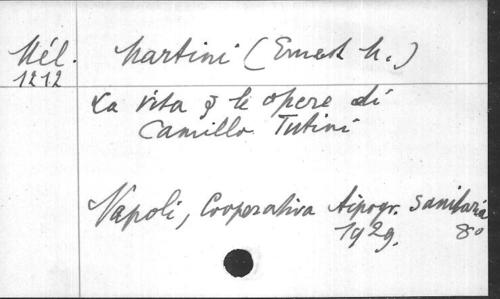 Mél. Martini (Ernest M.)
1212
La vita e le opere di
Camillo Tutini
Napoli, Cooperativa tipogr. sanitaria
1929. 8°